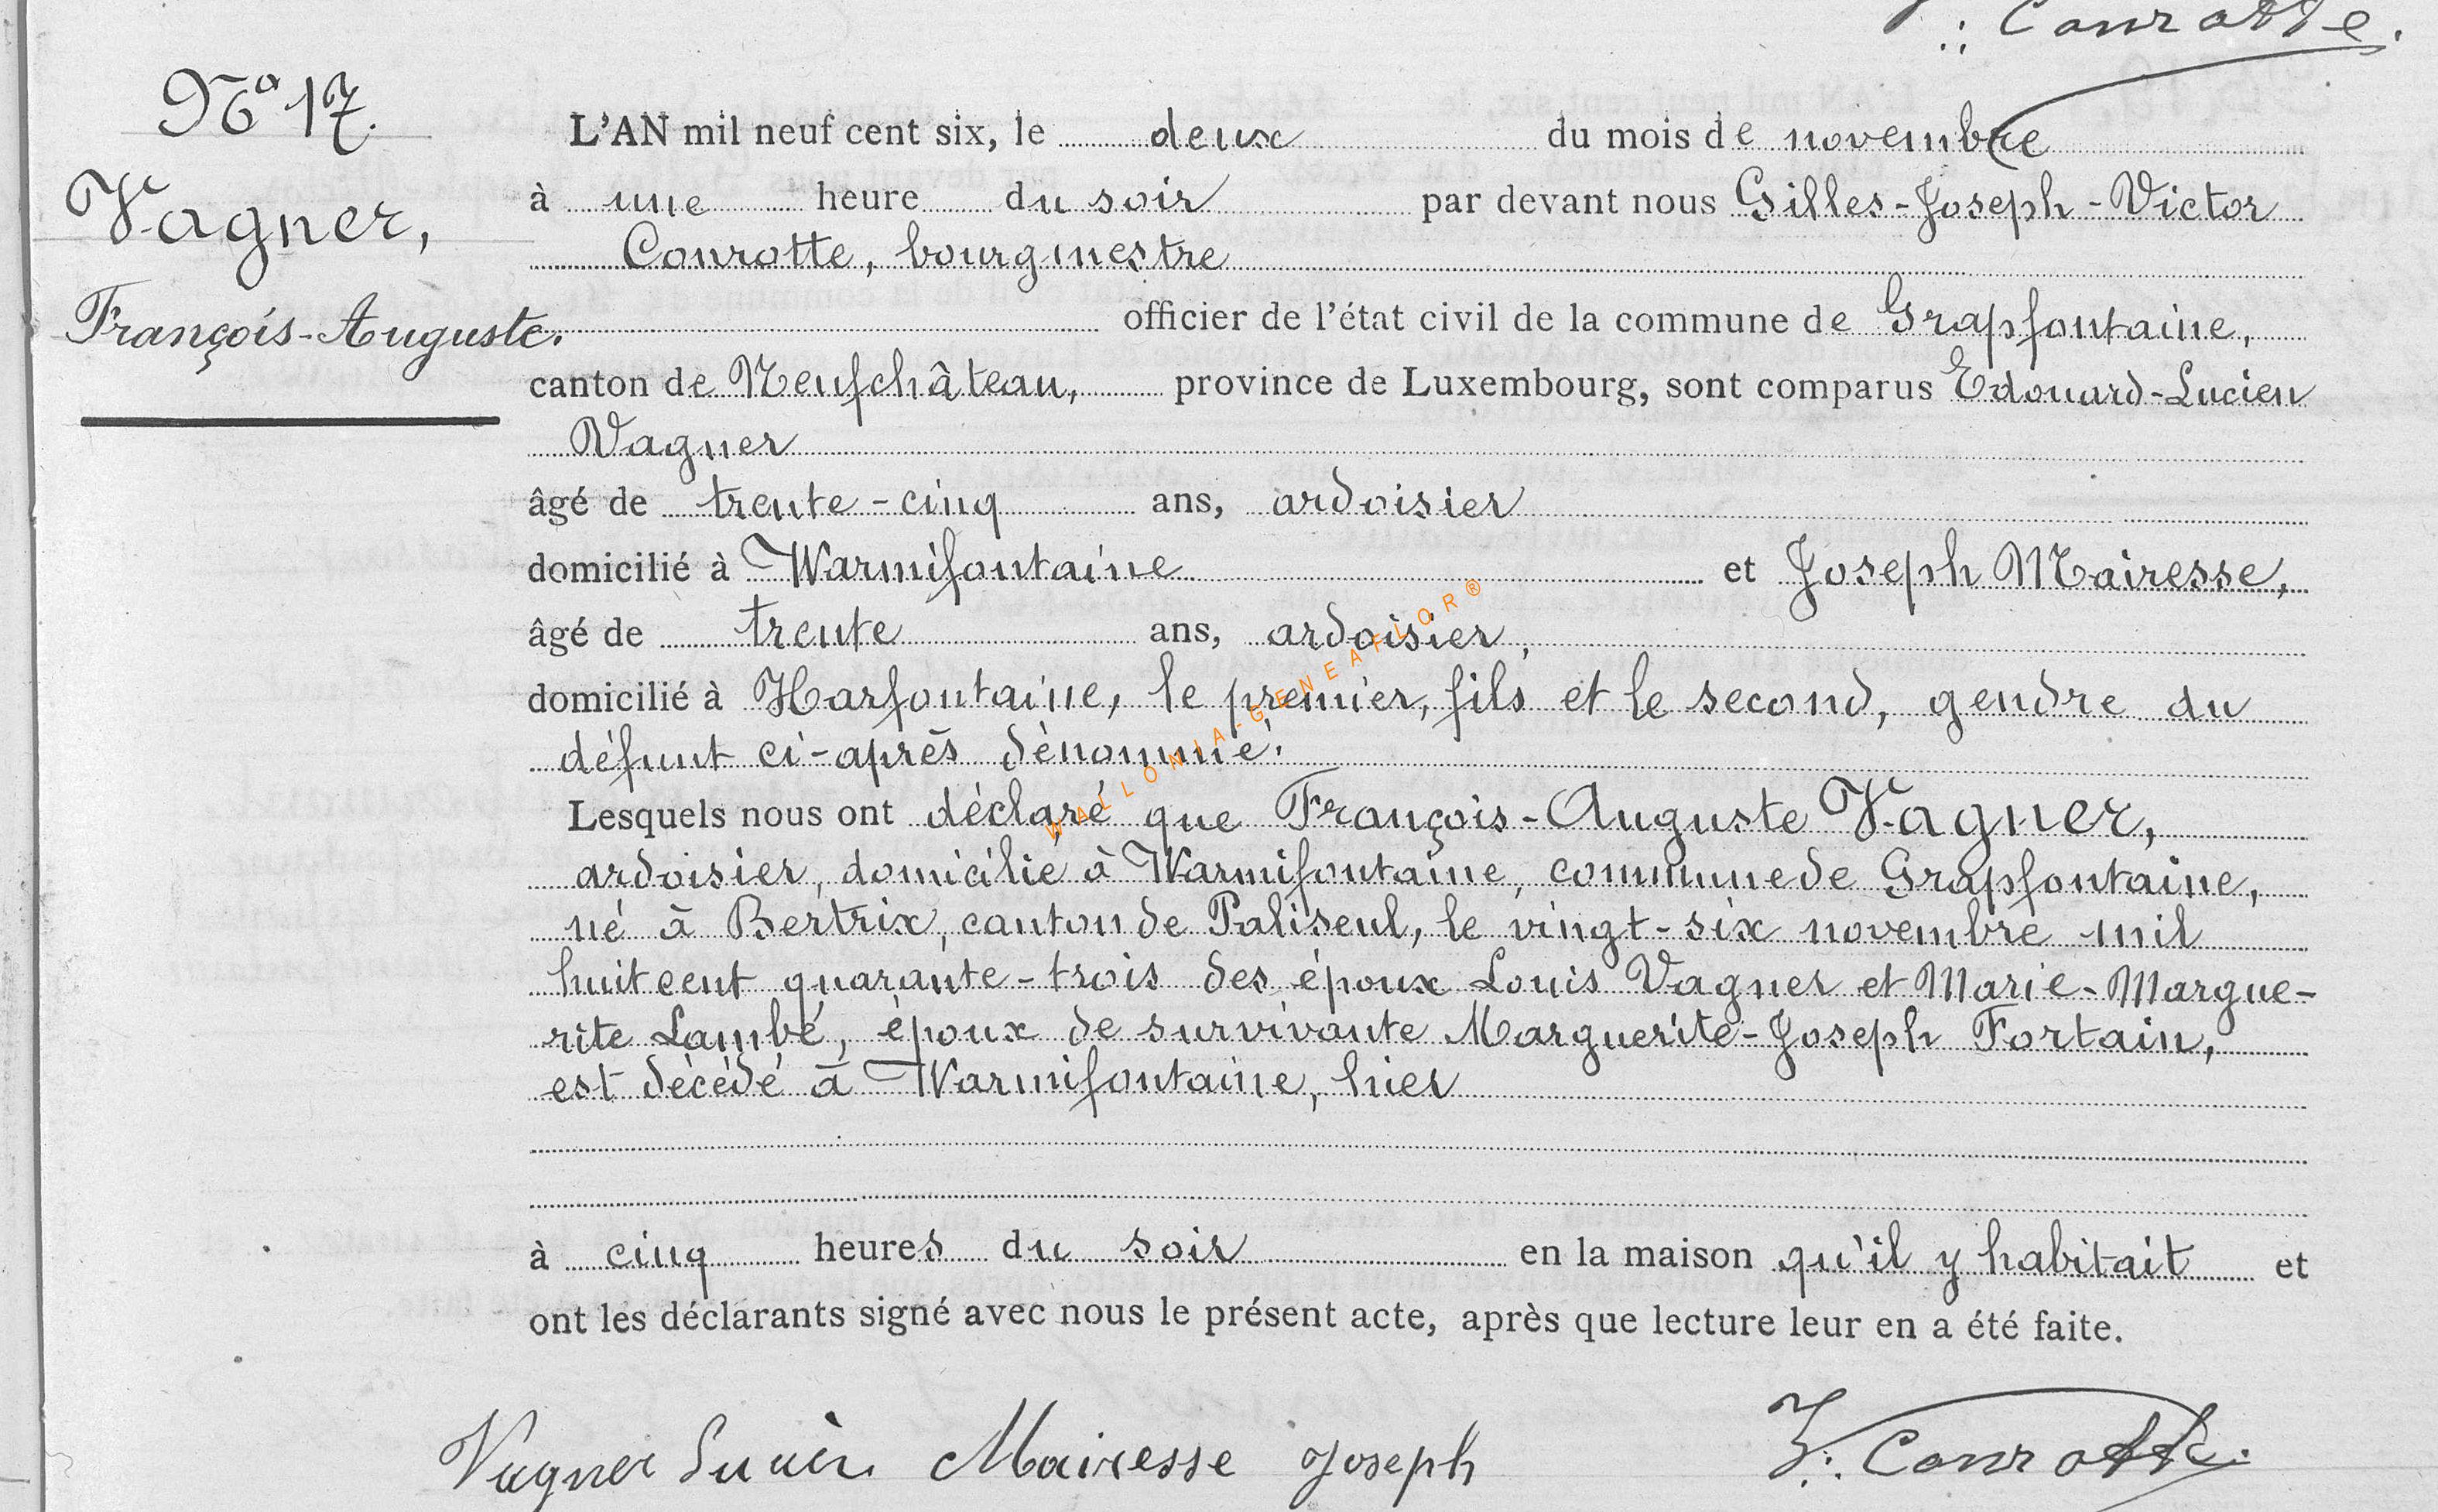 V: Conrotte.
Nº 17.
Vagner,
François-Auguste.
L'AN mil neuf cent six, le deux du mois de novembre
à une heure du soir par devant nous Gilles-Joseph-Victor
Conrotte, bourgmestre
officier de l'état civil de la commune de Grapfontaine,
canton de Neufchâteau, province de Luxembourg, sont comparus Edouard-Lucien
Vagner
âgé de trente-cinq ans, ardoisier
domicilié à Warmifontaine et Joseph Mairesse,
âgé de trente ans, ardoisier,
domicilié à Harfontaine, le premier, fils et le second, gendre du
défunt ci-après dénommé.
Lesquels nous ont déclaré que François-Auguste Vagner,
ardoisier, domicilié à Warmifontaine, commune de Grapfontaine,
né à Bertrix, canton de Paliseul, le vingt-six novembre mil
huit cent quarante-trois des époux Louis Vagner et Marie-Margue-
rite Lambé, époux de survivante Marguerite-Joseph Fortain,
est décédé à Warmifontaine, hier
à cinq heures du soir en la maison qu'il y habitait et
ont les déclarants signé avec nous le présent acte, après que lecture leur en a été faite.
Vagner Lucien Mairesse Joseph V: Conrotte.
WALLONIA-GENEAFLOR®